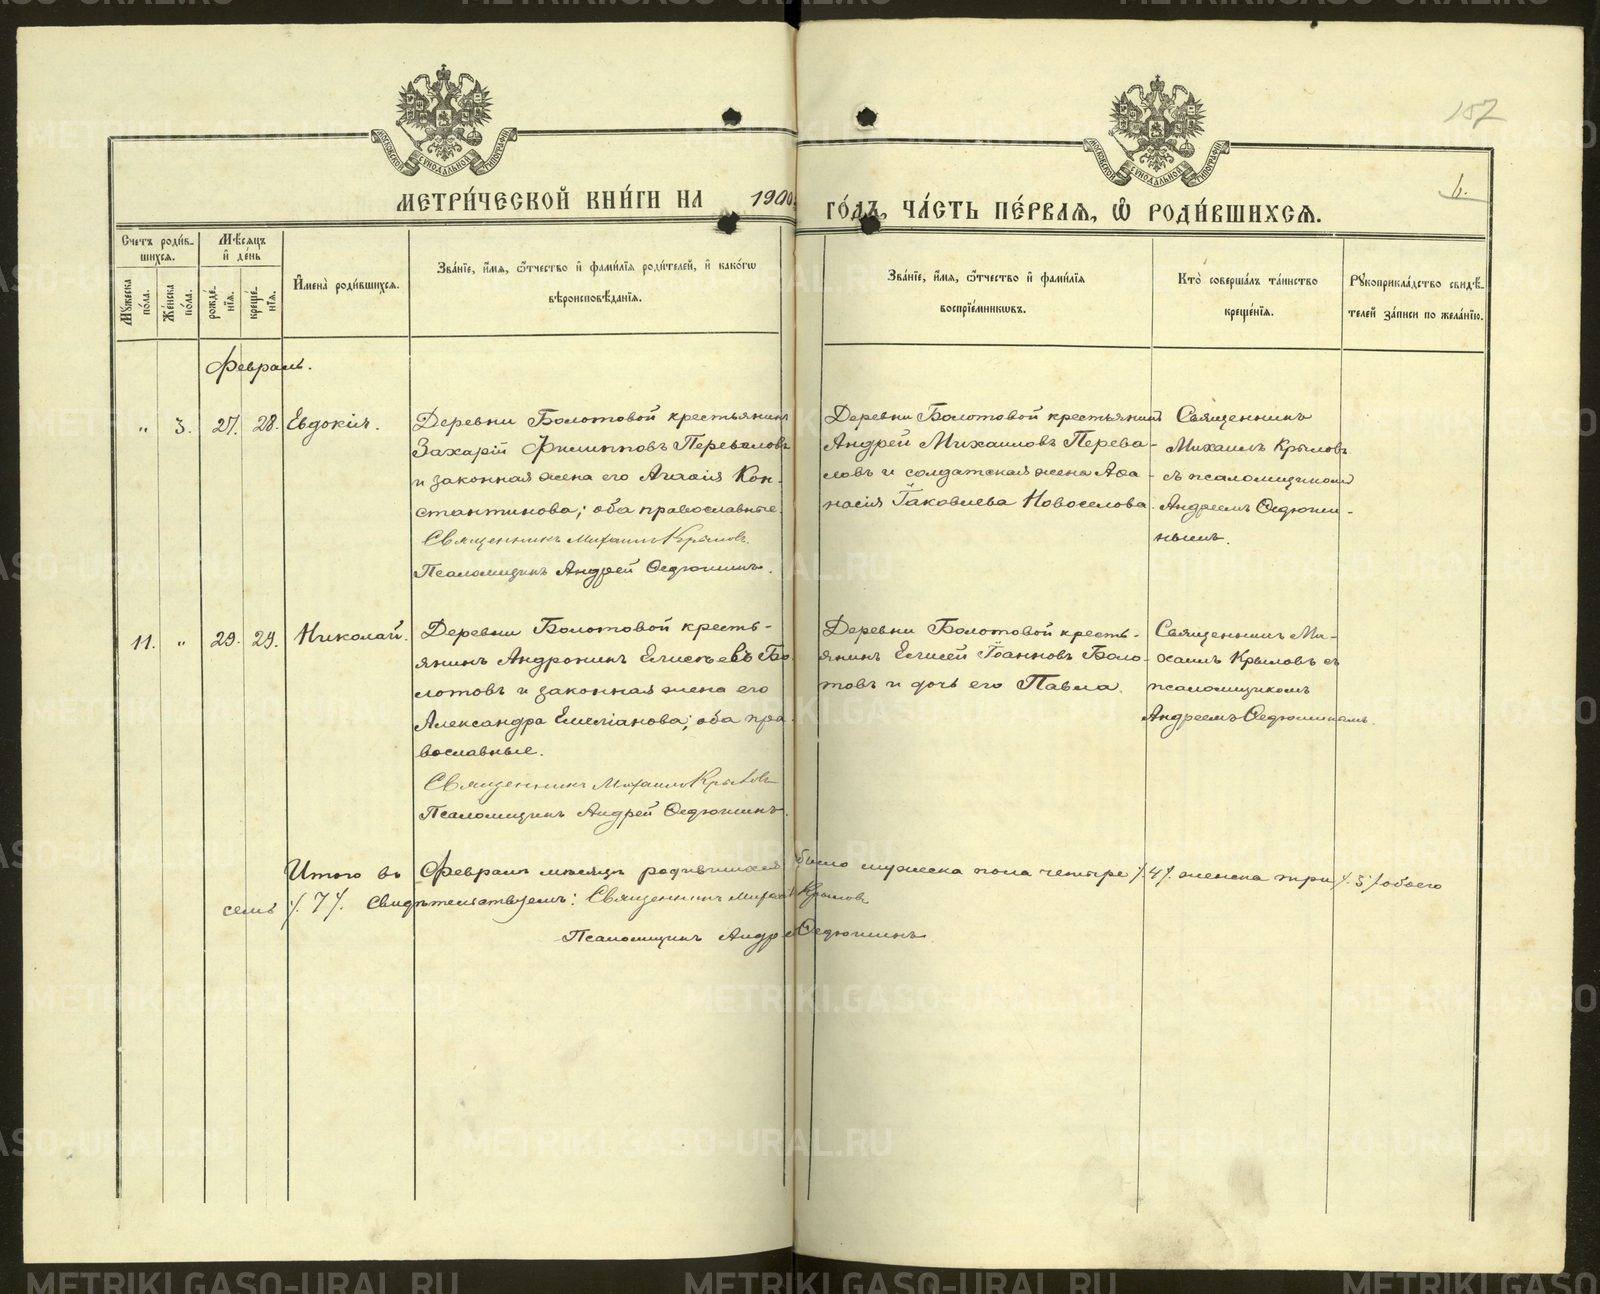 157
6.
МОСКОВСКОЙ СѴНОДАЛЬНОЙ ТИПОГРАФІИ
МОСКОВСКОЙ СѴНОДАЛЬНОЙ ТИПОГРАФІИ
МЕТРИ́ЧЕСКОЙ КНИ́ГИ НА 1900 ГО́ДЪ, ЧА́СТЬ ПЕ́РВАѦ, Ѽ РОДИ́ВШИХСѦ.
Счетъ роди́вшихсѧ.
Мꙋжеска по́ла.
Же́нска по́ла.
Мѣ́сѧцъ и҆ де́нь
рожде́нїѧ.
креще́нїѧ.
И҆мена̀ роди́вшихсѧ.
Зва́нїе, и҆́мѧ, ѻ҆́тчество и҆ фамѝлїѧ роди́телей, и҆ како́гѡ
вѣроисповѣ́данїѧ.
Зва́нїе, и҆́мѧ, ѻ҆́тчество и҆ фамѝлїѧ
воспрїе́мникѡвъ.
Кто̀ соверша́лъ та́инство
креще́нїѧ.
Рꙋкоприкла́дство свидѣ́телей за́писи по жела́нїю.
Февраль.
„ 3. 27. 28. Евдокія.
Деревни Болотовой крестьянинъ
Захарій Филипповъ Перевaловъ
и законная жена его Агаѳія Кон-
стантинова; оба православные.
Священникъ Михаилъ Крыловъ.
Псаломщикъ Андрей Ѳедюшинъ.
Деревни Болотовой крестьянинъ
Андрей Михаиловъ Перева-
ловъ и солдатская жена Аѳа-
насія Іаковлева Новоселова.
Священникъ
Михаилъ Крыловъ
съ псаломщикомъ
Андреемъ Ѳедюши-
нымъ.
11. „ 29. 29. Николай.
Деревни Болотовой кресть-
янинъ Андроникъ Елисѣевъ Бо-
лотовъ и законная жена его
Александра Емеліанова; оба пра-
вославные.
Священникъ Михаилъ Крыловъ
Псаломщикъ Андрей Ѳедюшинъ.
Деревни Болотовой кресть-
янинъ Елисей Іоанновъ Боло-
товъ и дочь его Павла.
Священникъ Ми-
хаилъ Крыловъ съ
псаломщикомъ
Андреемъ Ѳедюшинымъ.
Итого въ Февралѣ мѣсяцѣ родившихся было мужеска пола четыре /.4/. женска три /.3/. обоего
семь /.7/. Свидѣтельствуемъ: Священникъ Михаилъ Крыловъ
Псаломщикъ Андрей Ѳедюшинъ.
METRIKI.GASO-URAL.RU